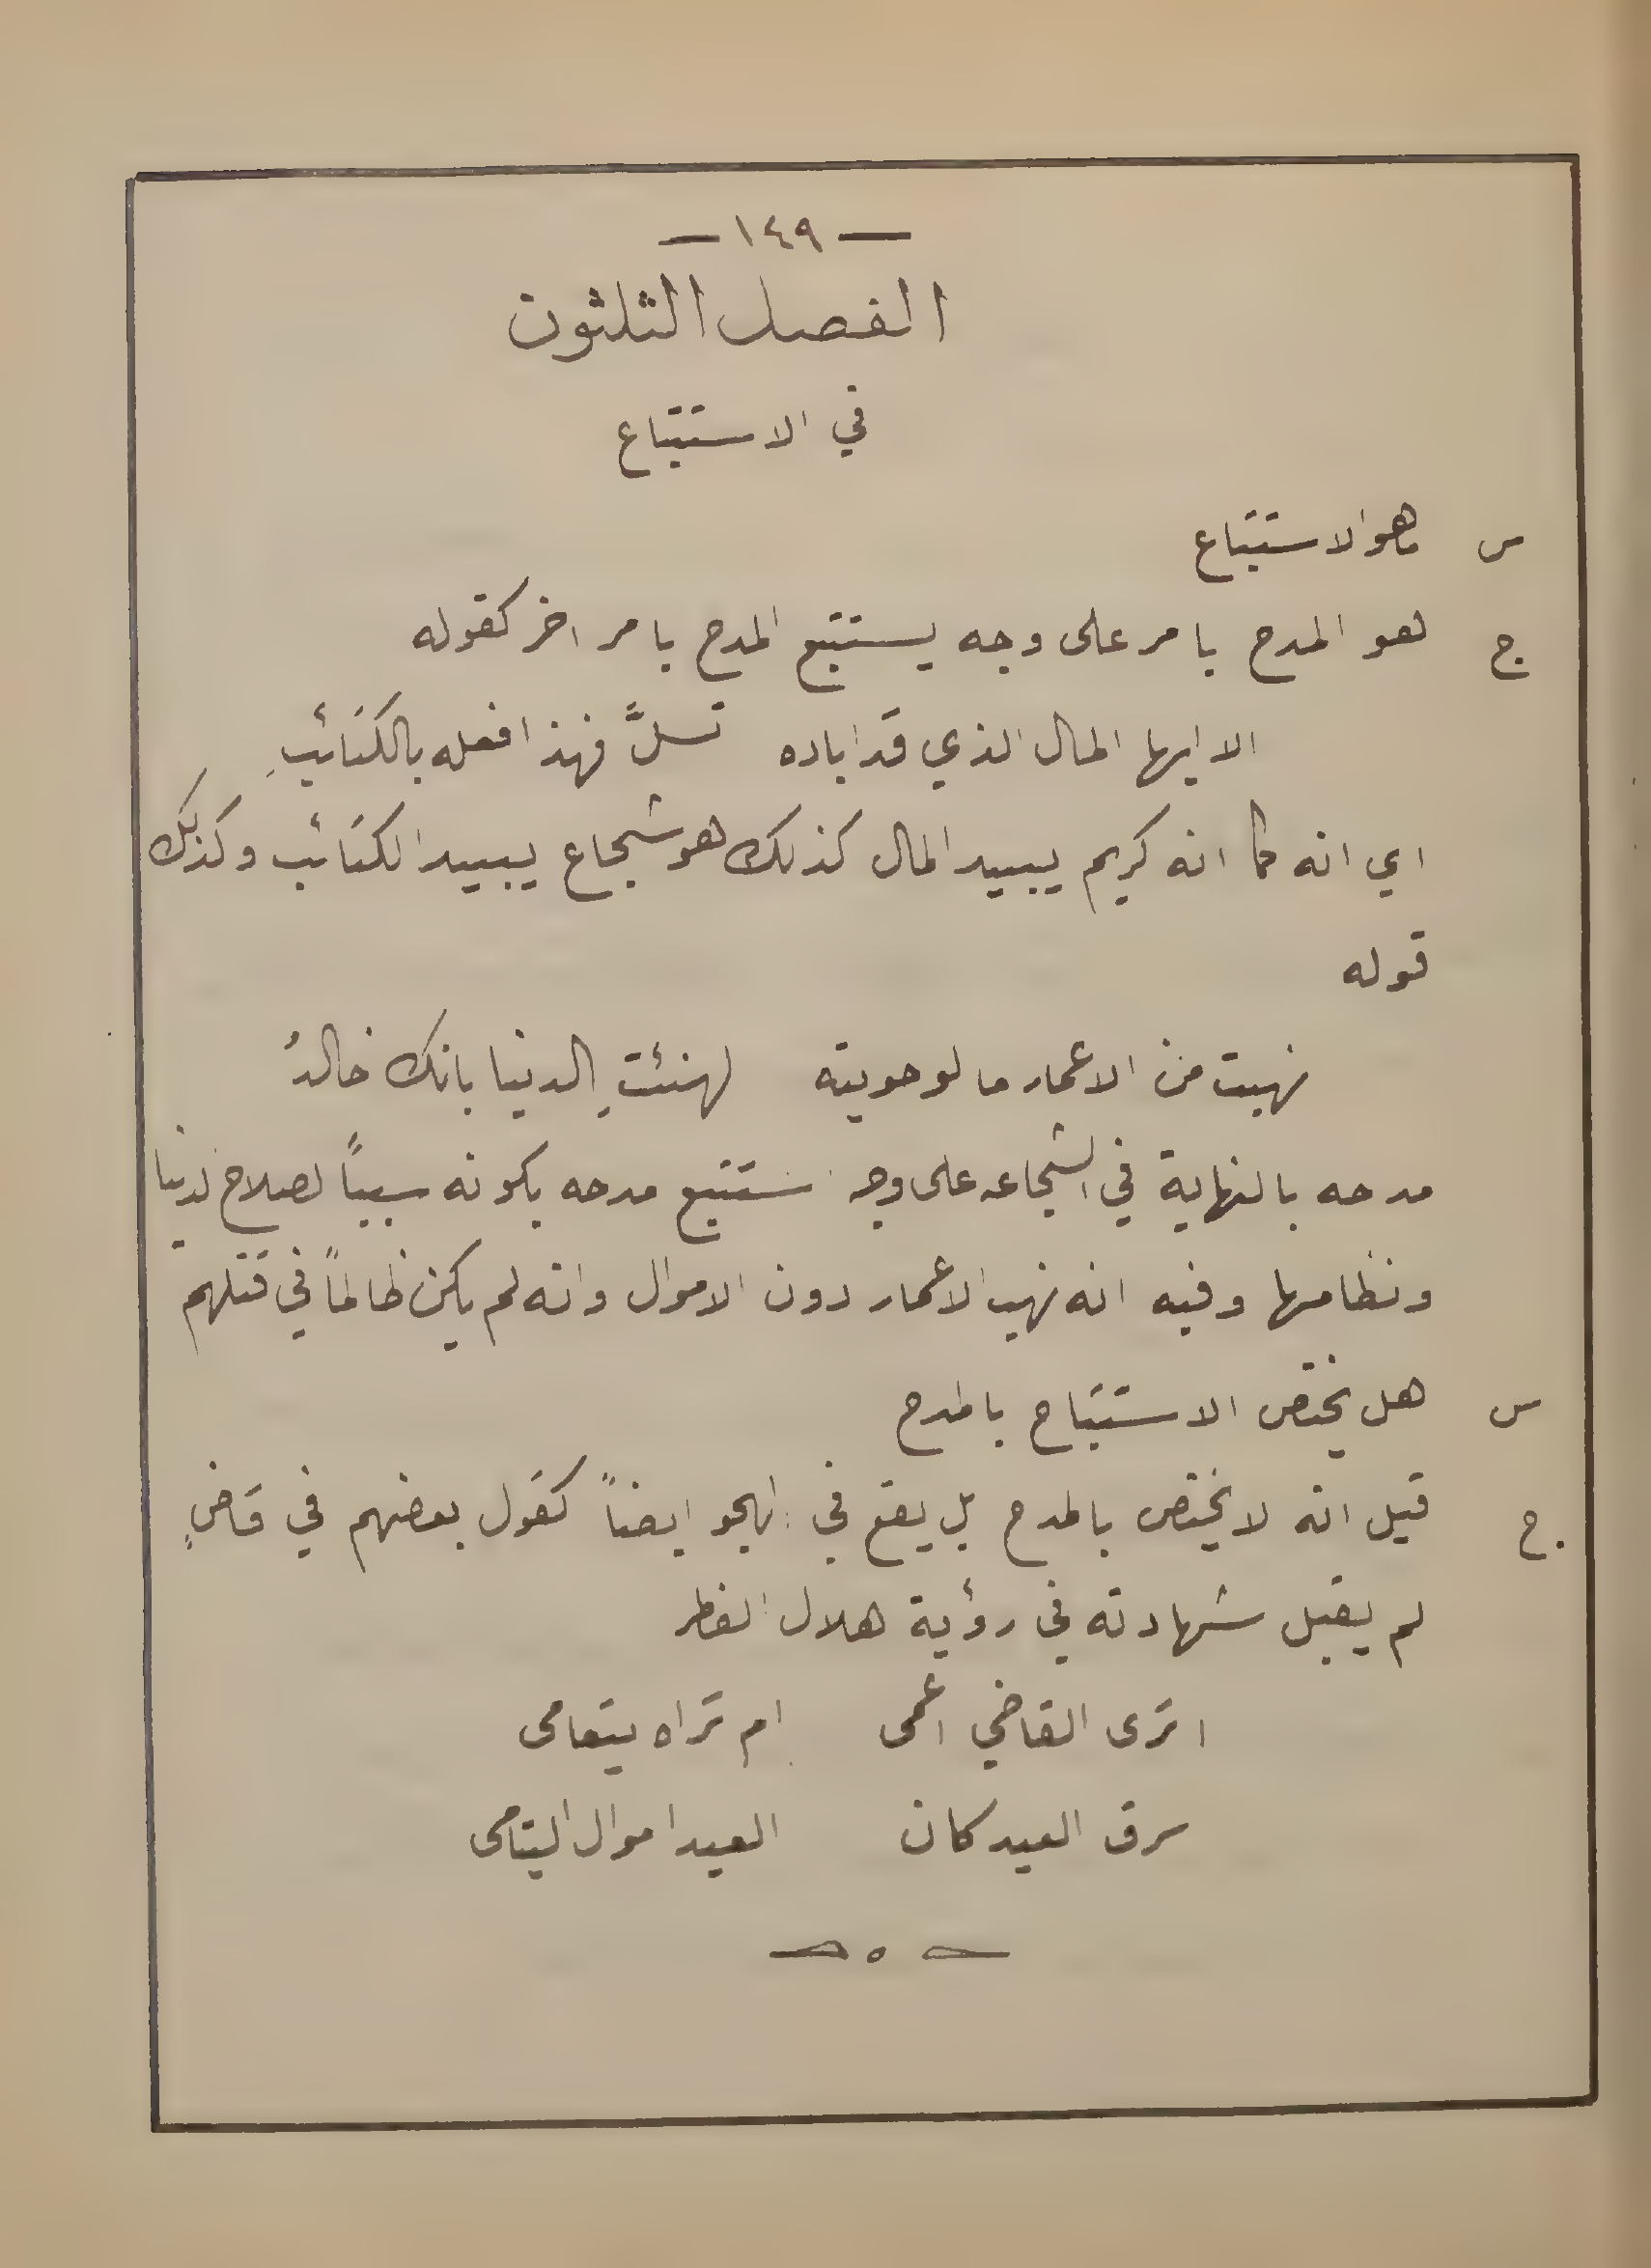 — ١٤٩ —
الفصل الثلثون
في الاستتباع
س ماهو الاستتباع
ج هو المدح بامر على وجه يستتبع المدح بامر اخر كقوله
الا ايها المال الذي قد اباده تسلَّ فهذا فعله بالكتائبِ
اي انه كما انه كريم يبيد المال كذلك هو شجاع يبيد الكتائب وكذلك
قوله
نهبت من الاعمار ما لو حويته لهنئتِ الدنيا بانك خالدُ
مدحه بالنهاية في الشجاعه على وجه ستتبع مدحه بكونه سبباً لصلاح الدنيا
ونظامها وفيه انه نهب الاعمار دون الاموال وانه لم يكن ظالماً في قتلهم
س هل يختص الاستتباع بالمدح
ج قيل انه لا يختص بالمدح بل يقع في الهجو ايضاً كقول بعضهم في قاضٍ
لم يقبل شهادته في رؤية هلال الفطر
اترى القاضي اعمى ام تراه يتعامى
سرق العيد كان العيد اموال اليتامى